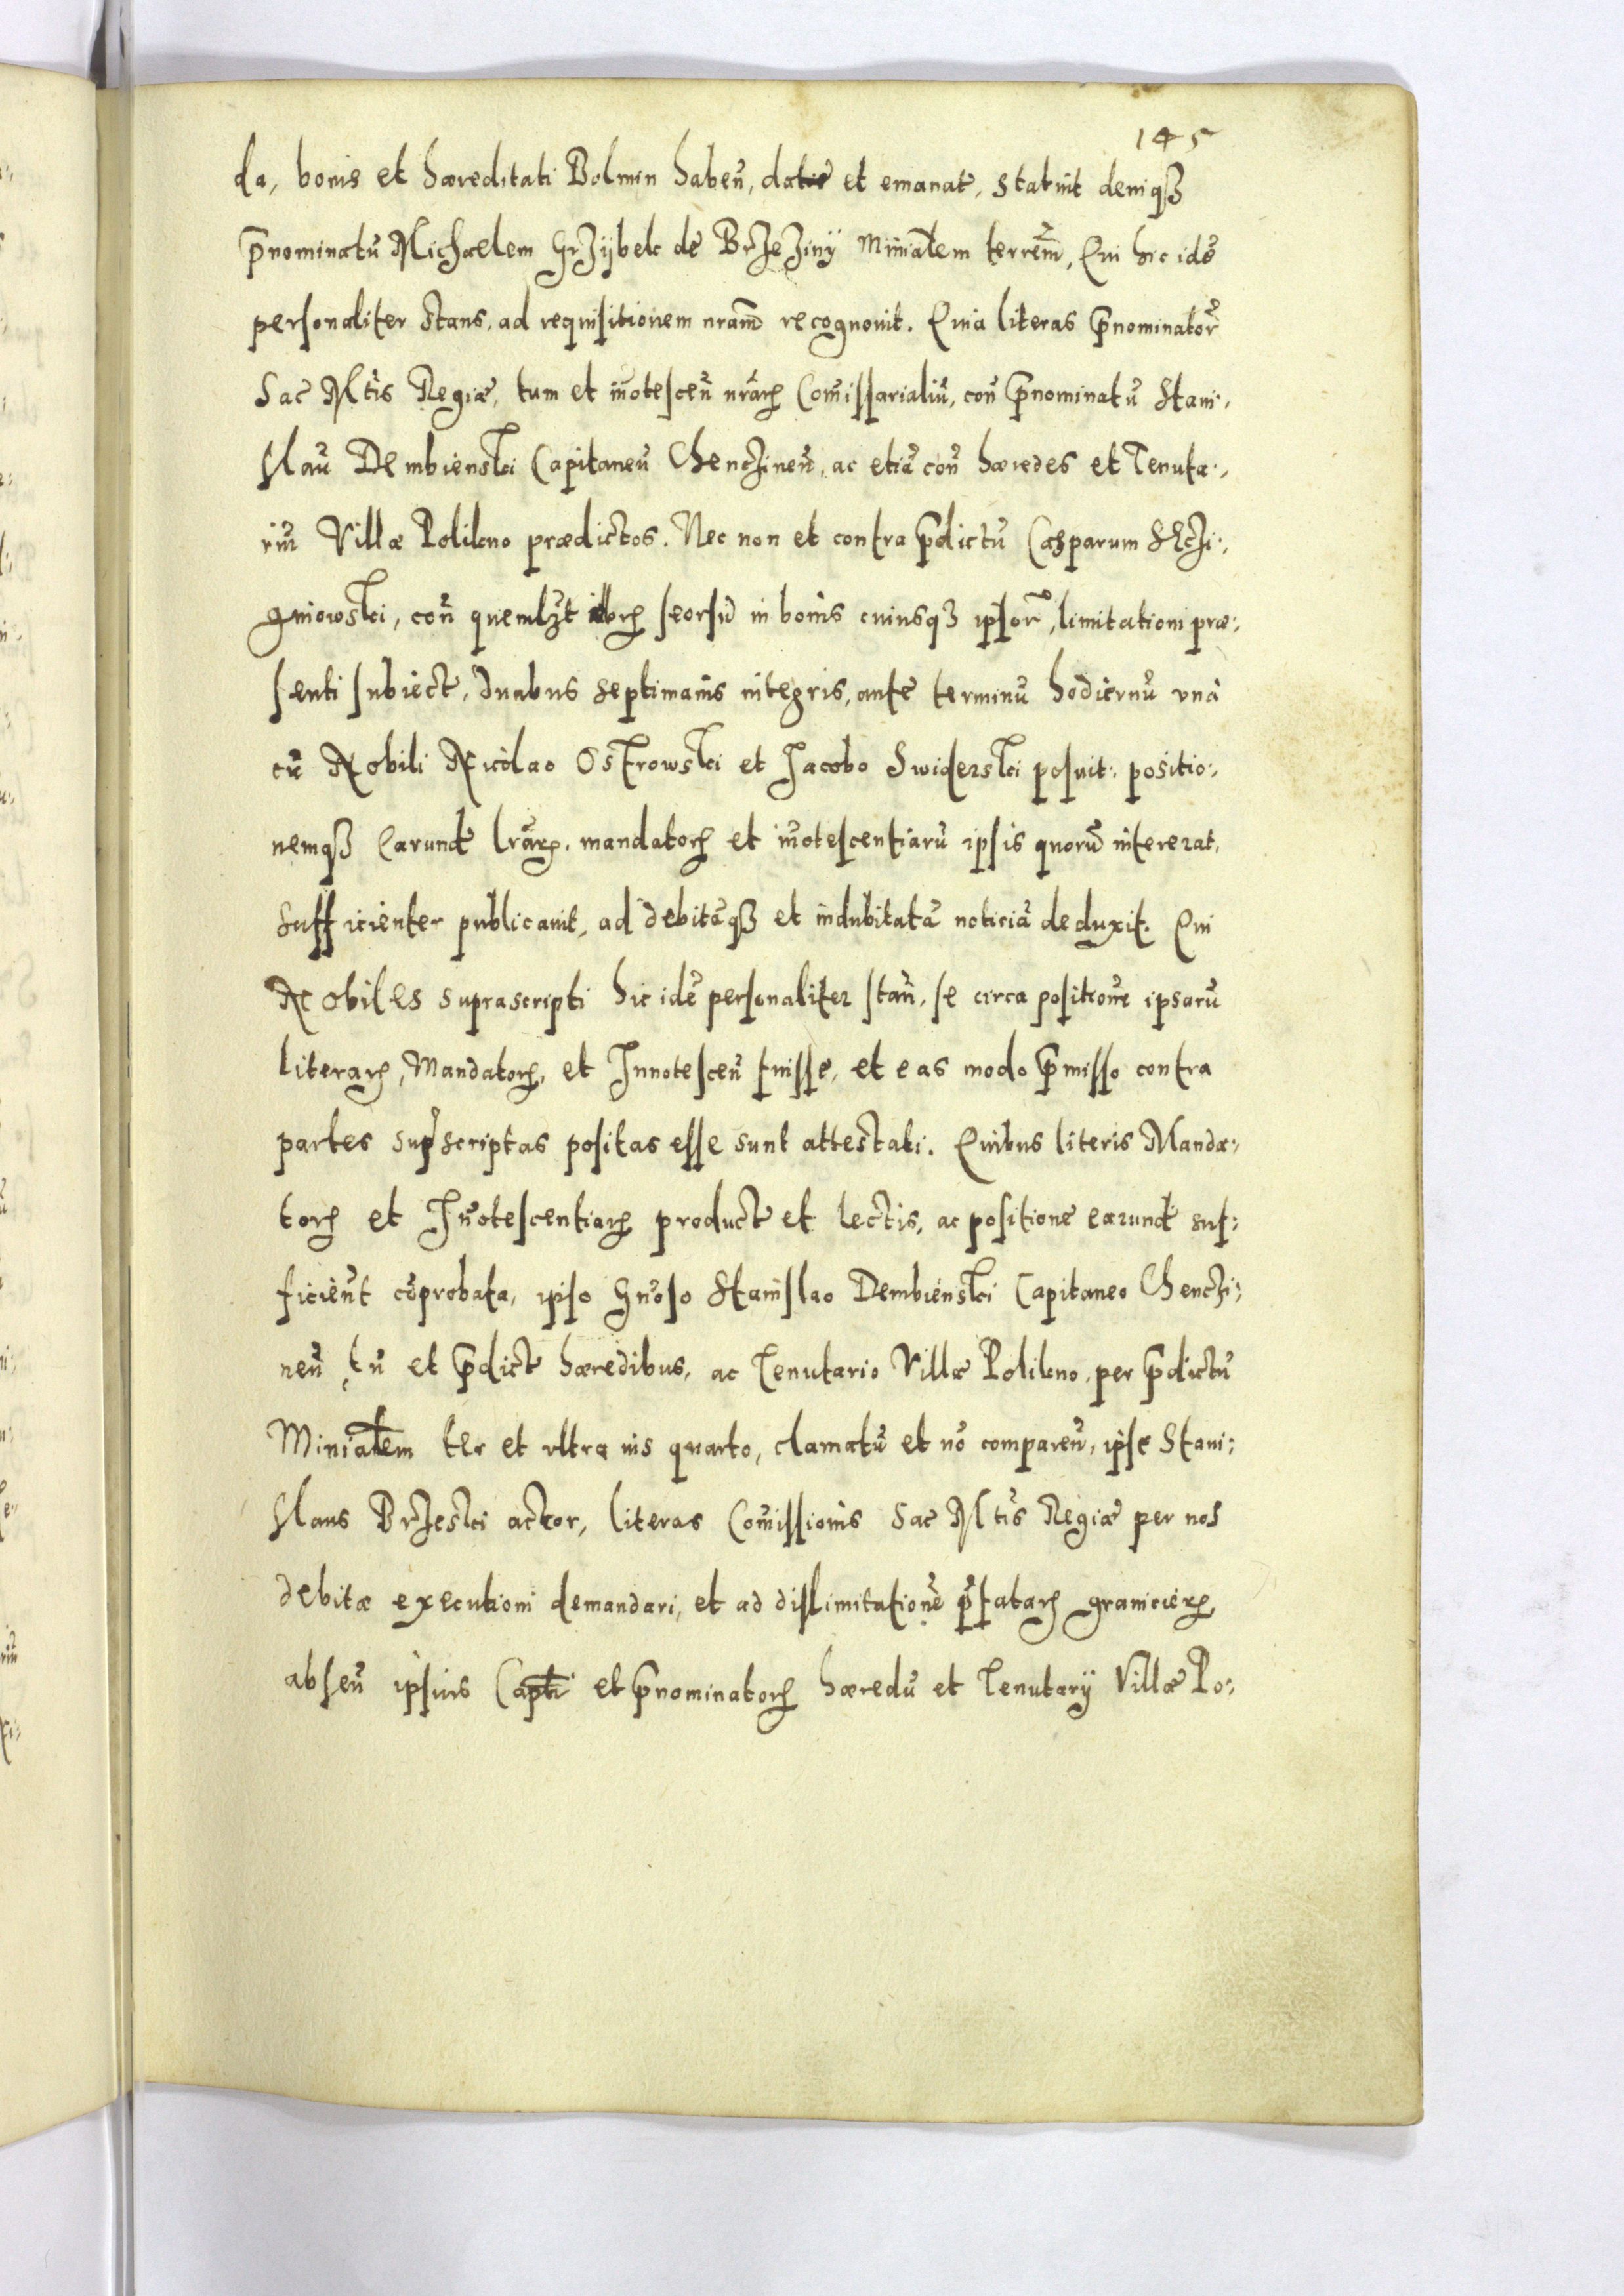 145
da, bonis et hæreditati Bolmin haben̄, datis et emanat, statuit deniqꝫ
p̄nominatū Michaelem Grzÿbek de Brzezinÿ Minialem terrēm, Qui hic idē
personaliter stans, ad requisitionem nram̄ recognouit. Quia literas p̄nominator
Sac Mtis Regiæ, tum et īnotescen̄ nrarꝝ Com̄issarialiū, con̄ p̄nominatū Stani:
slaū Dembienski Capitaneū Chenczinen̄, ac etiā con̄ hæredes et Tenuta:
riū Villæ Polikno prædictos. Nec non et contra p̄dictū Casparum
gniowski, con̄ quemlꝫt illorꝝ seorsū in bonis cuiusqꝫ ipsor, limitationi præ:
senti subiect, duabus septimanis integris, ante terminū hodiernū vnà
cū Nobili Nicolao Ostrowski et Jacobo Swiderski posuit: positio:
nemqꝫ earund lrarꝝ, mandatorꝝ et īnotescentiarū ipsis quorū intererat,
sufficienter publicauit, ad debitāqꝫ et indubitatā noticiā deduxit. Qui
Nobiles suprascripti hic idē personaliter stan̄, se circa positionē ipsarū
literarꝝ, Mandatorꝝ, et Innotescen̄ fuisse, et eas modo p̄misso contra
partes supscriptas positas esse sunt attestati. Quibus literis Manda:
torꝝ et In̄otescentiarꝝ product et lectis, ac positione earund suf:
ficient cōprobata, ipso Gn̄oso Stanislao Dembienski Capitaneo Chenczi:
nen̄ tū et p̄dict hæredibus, ac Tenutario Villæ Polikno, per p̄dictū
Minialem ter et vltra uis quarto, clamatū et nō comparen̄, ipse Stani:
slaus Brzeski actor, literas Com̄issionis Sac Mtis Regiæ per nos
debitæ executioni demandari, et ad dislimitationē p̄fatarꝝ granicierꝝ,
absen̄ ipsius Capti et p̄nominatorꝝ hæredū et Tenutarÿ Villæ Po: